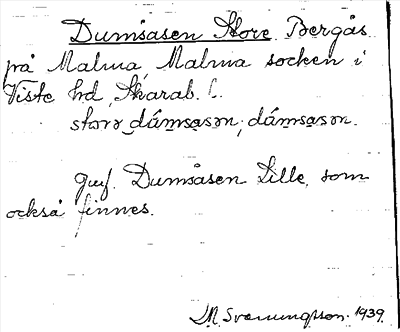 Dumsåsen Store. Bergås
på Malma, Malma socken i
Viste hd, Skarab. l.
storo dåmsason; dåmsason.
Jmf. Dumsåsen Lille, som
också finnes.
M. Svanungsson. 1939